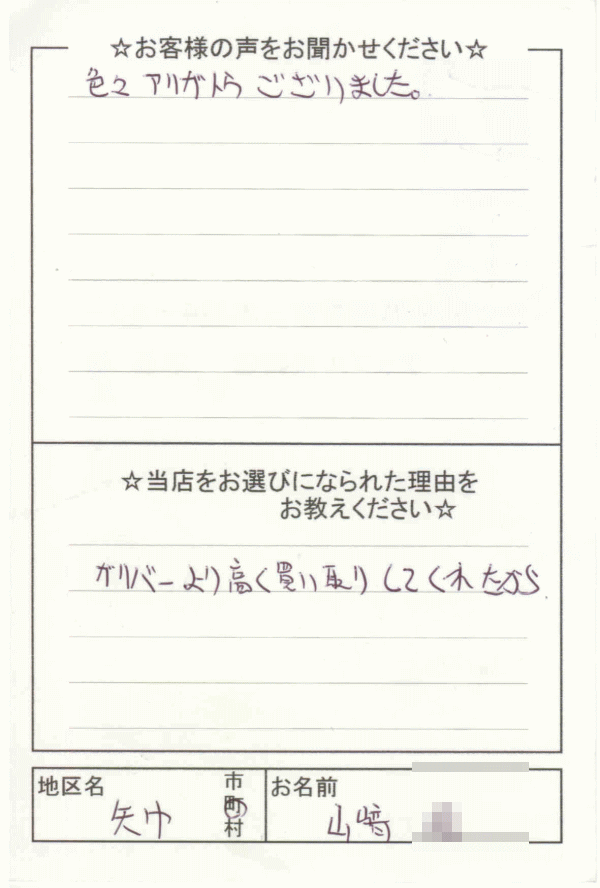 ☆お客様の声をお聞かせください☆
色々アリガトうございました。
☆当店をお選びになられた理由を
お教えください☆
ガリバーより高く買い取りしてくれたから
地区名
矢巾
市
町
村
お名前
山﨑